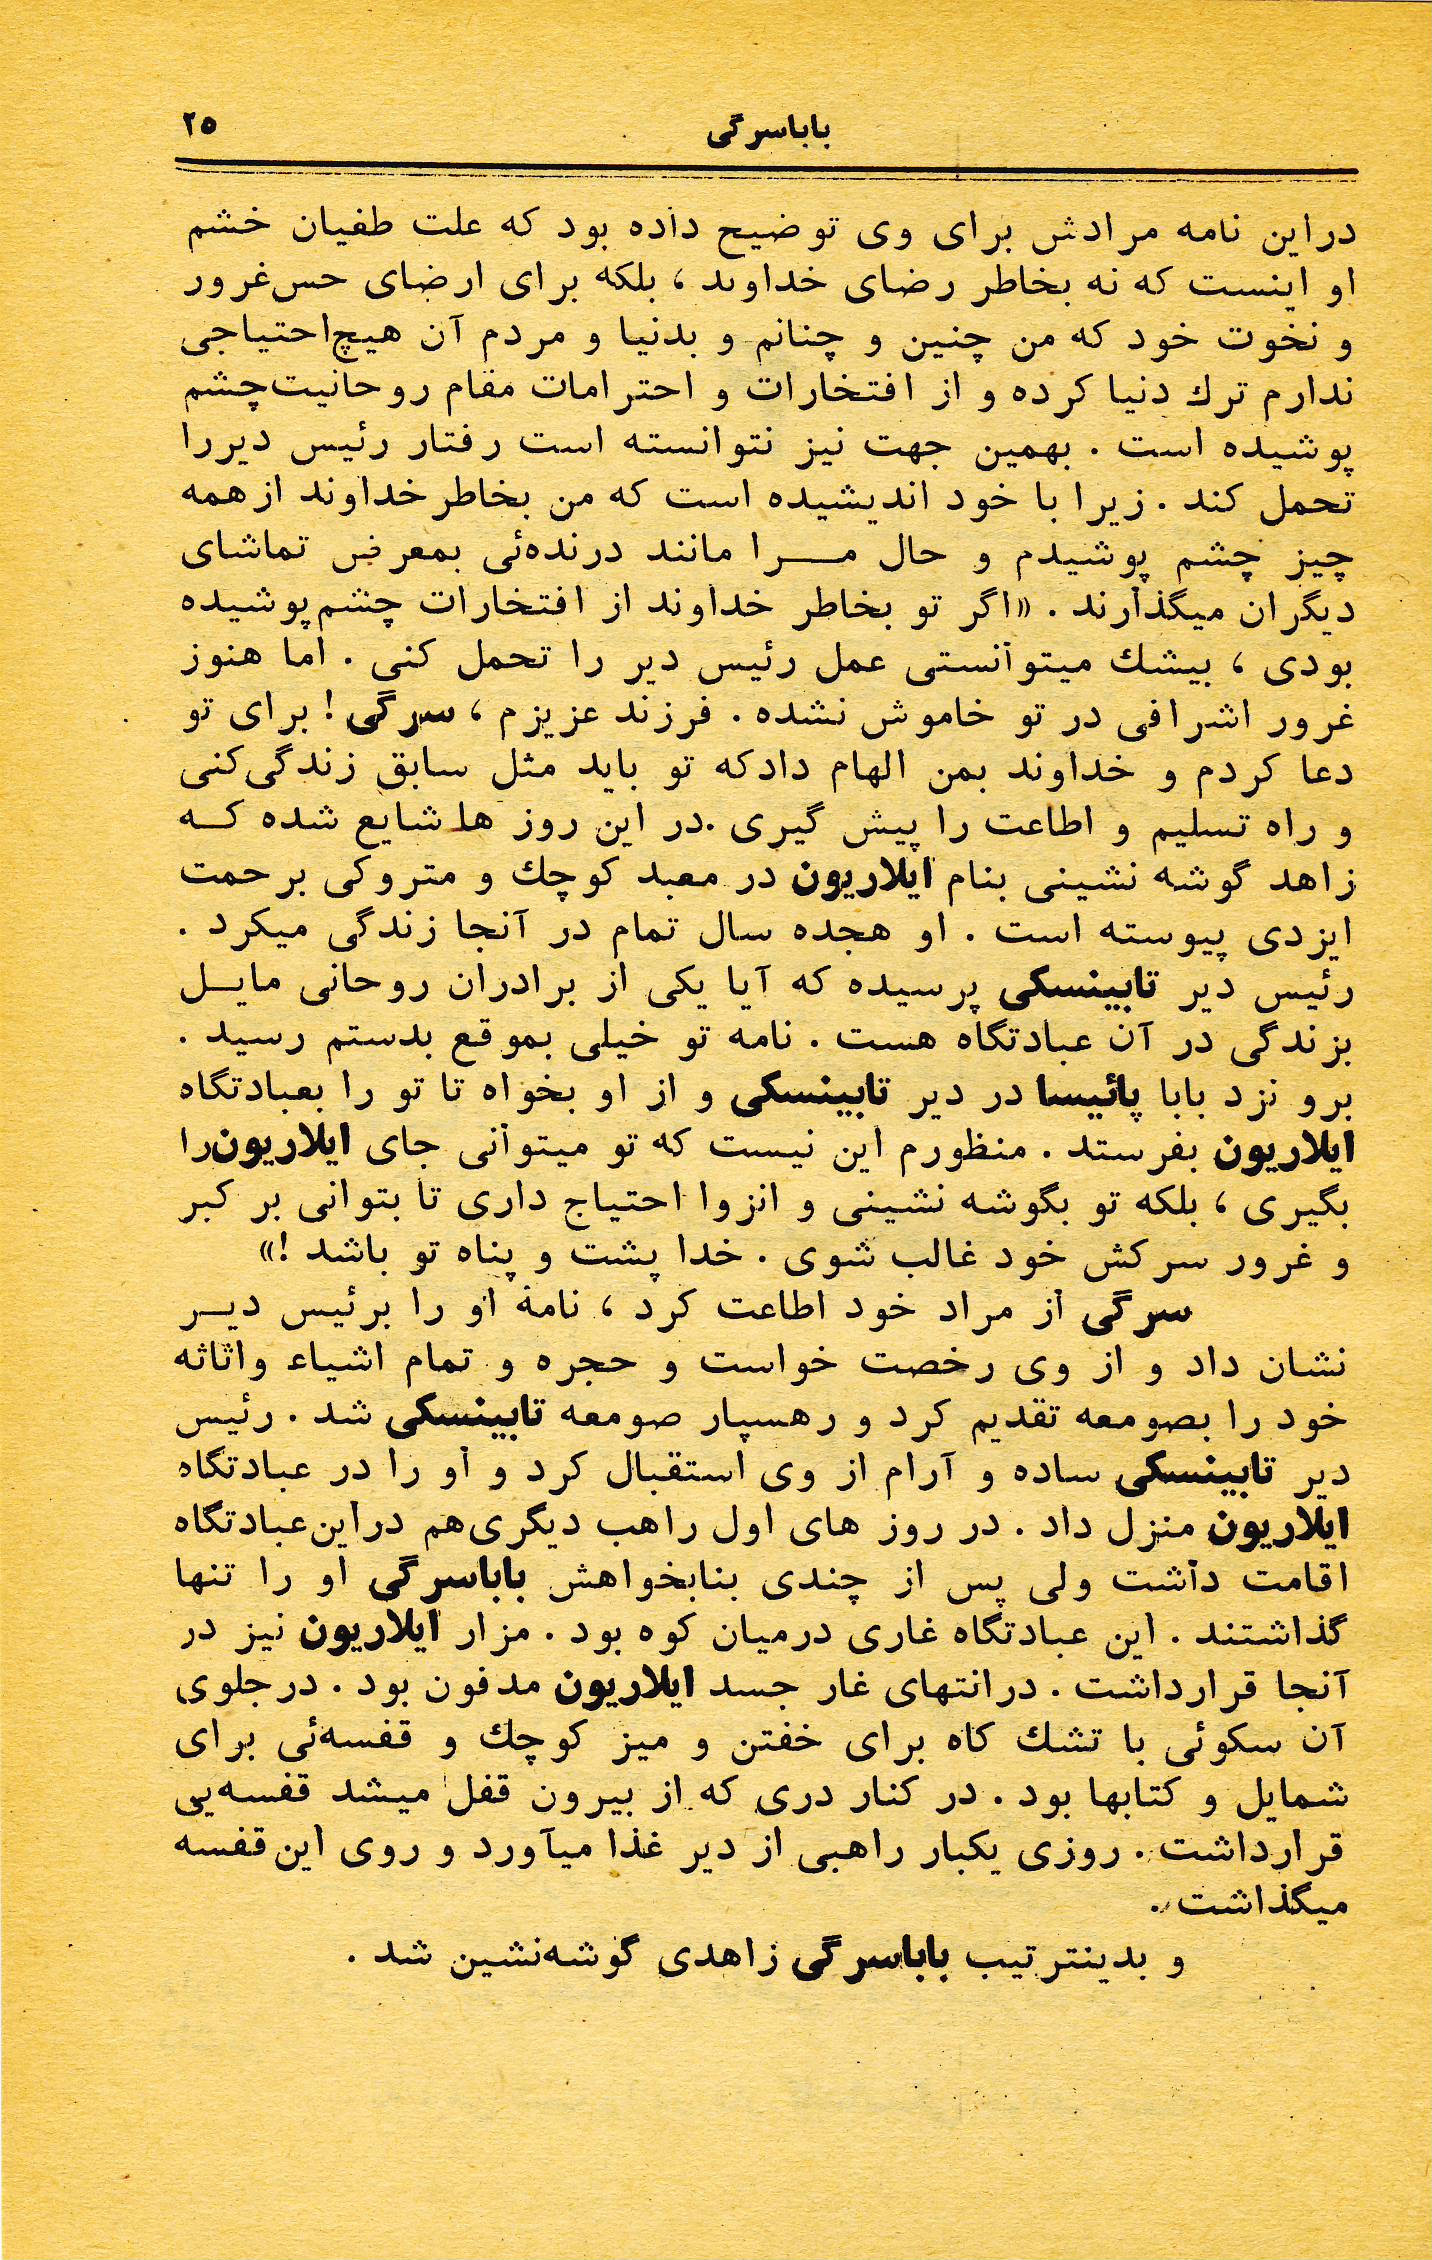 باباسرگی ۲۵
دراین نامه مرادش برای وی توضیح داده بود که علت طفیان خشم
او اینست که نه بخاطر رضای خداوند ، بلکه برای ارضای حس‌غرور
و نخوت خود که من چنین و چنانم و بدنیا و مردم آن هیچ‌احتیاجی
ندارم ترك دنیا کرده و از افتخارات و احترامات مقام روحانیت‌چشم
پوشیده است . بهمین جهت نیز نتوانسته است رفتار رئیس دیررا
تحمل کند . زیرا با خود اندیشیده است که من بخاطرخداوند ازهمه
چیز چشم پوشیدم و حال مـــرا مانند درنده‌ئی بمعرض تماشای
دیگران میگذارند . «اگر تو بخاطر خداوند از افتخارات چشم‌پوشیده
بودی ، بیشك میتوانستی عمل رئیس دیر را تحمل کنی . اما هنوز
غرور اشرافی در تو خاموش نشده . فرزند عزیزم ، سرگی ! برای تو
دعا کردم و خداوند بمن الهام دادکه تو باید مثل سابق زندگی‌کنی
و راه تسلیم و اطاعت را پیش گیری .در این روز ها شایع شده کــه
زاهد گوشه نشینی بنام ایلاریون در معبد کوچك و متروکی برحمت
ایزدی پیوسته است . او هجده سال تمام در آنجا زندگی میکرد .
رئیس دیر تابینسکی پرسیده که آیا یکی از برادران روحانی مایــل
بزندگی در آن عبادتگاه هست . نامه تو خیلی بموقع بدستم رسید .
برو نزد بابا پائیسا در دیر تابینسکی و از او بخواه تا تو را بعبادتگاه
ایلاریون بفرستد . منظورم این نیست که تو میتوانی جای ایلاریون‌را
بگیری ، بلکه تو بگوشه نشینی و انزوا احتیاج داری تا بتوانی بر کبر
و غرور سرکش خود غالب شوی . خدا پشت و پناه تو باشد !»
سرگی از مراد خود اطاعت کرد ، نامهٔ او را برئیس دیــر
نشان داد و از وی رخصت خواست و حجره و تمام اشیاء واثاثه
خود را بصومعه تقدیم کرد و رهسپار صومعه تابینسکی شد . رئیس
دیر تابینسکی ساده و آرام از وی استقبال کرد و او را در عبادتگاه
ایلاریون منزل داد . در روز های اول راهب دیگری‌هم دراین‌عبادتگاه
اقامت داشت ولی پس از چندی بنابخواهش باباسرگی او را تنها
گذاشتند . این عبادتگاه غاری درمیان کوه بود . مزار ایلاریون نیز در
آنجا قرارداشت . درانتهای غار جسد ایلاریون مدفون بود . درجلوی
آن سکوئی با تشك کاه برای خفتن و میز کوچك و قفسه‌ئی برای
شمایل و کتابها بود . در کنار دری که از بیرون قفل میشد قفسه‌یی
قرارداشت . روزی یکبار راهبی از دیر غذا میآورد و روی این‌قفسه
میگذاشت .
و بدینترتیب باباسرگی زاهدی گوشه‌نشین شد .